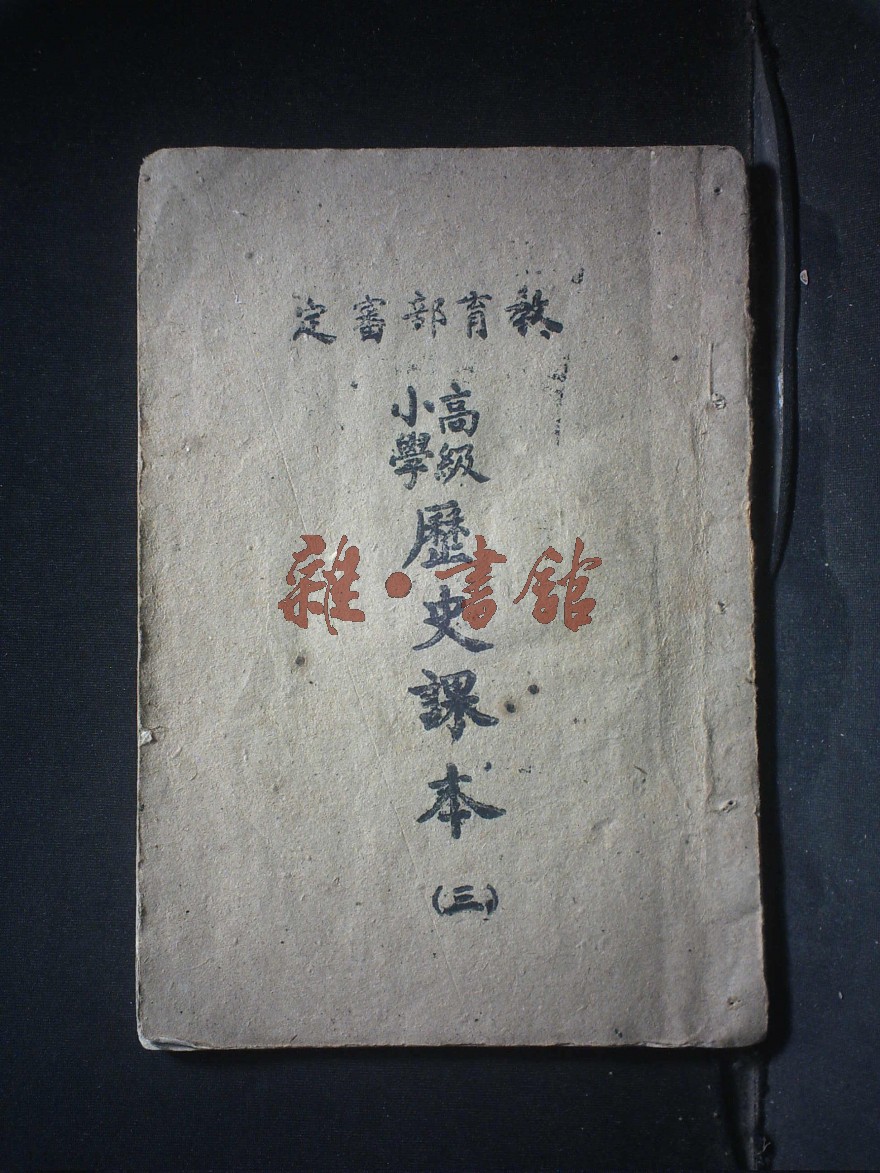 教育部審定
高級
小學
歷史課本
(三)
雜·書館